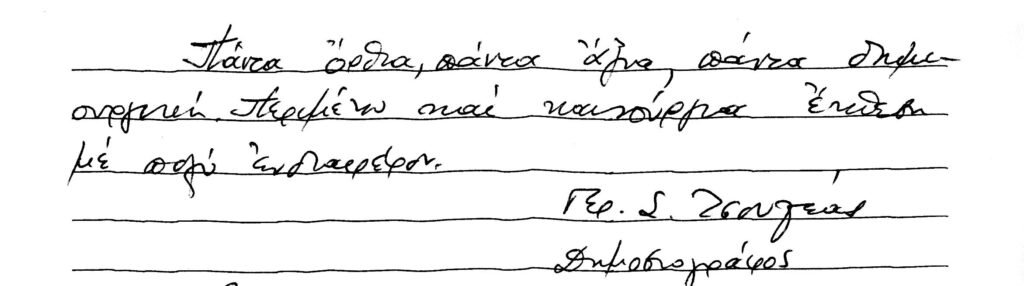 Πάντα ὄρθια, πάντα ἄξια, πάντα δημι-
ουργική. Περιμένω καί καινούργια ἔκθεση
μέ πολύ ἐνδιαφέρον.
Γερ. Σ.
Δημοσιογράφος